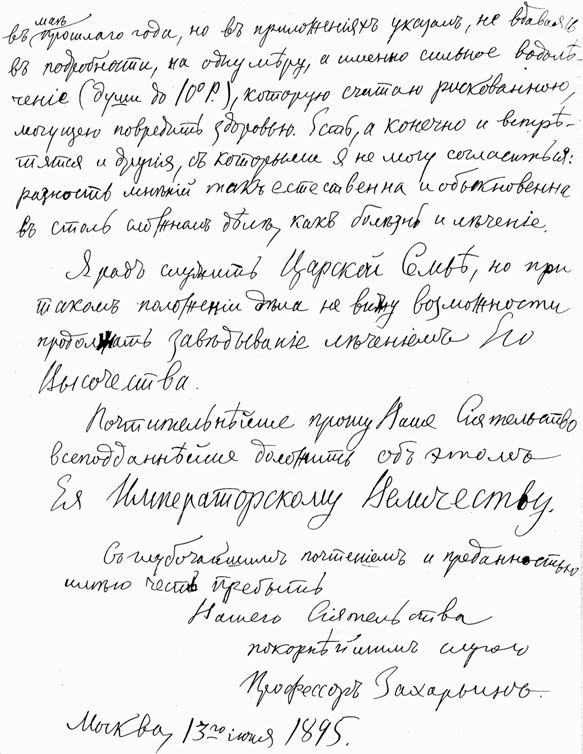 въ маѣ прошлаго года, но въ приложеніяхъ указалъ, не вдаваясь
въ подробности, на одну мѣру, а именно сильное водолѣ-
ченіе (души до 10° Р.), которую считаю рискованною,
могущею повредить здоровью. Есть, а конечно и встрѣ-
тятся и другія, съ которыми я не могу согласиться:
разность мнѣній такъ естественна и обыкновенна
въ столь сложномъ дѣлѣ, какъ болѣзнь и лѣченіе.
Я радъ служить Царской Семьѣ, но при
такомъ положеніи дѣла не вижу возможности
продолжать завѣдываніе лѣченіемъ Его
Высочества.
Почтительнѣйше прошу Ваше Сіятельство
всеподданнѣйше доложить объ этомъ
Ея Императорскому Величеству.
Съ глубочайшимъ почтеніемъ и преданностью
имѣю честь пребыть
Вашего Сіятельства
покорнѣйшимъ слугою
Профессоръ Захарьинъ.
Москва, 13го іюня 1895.